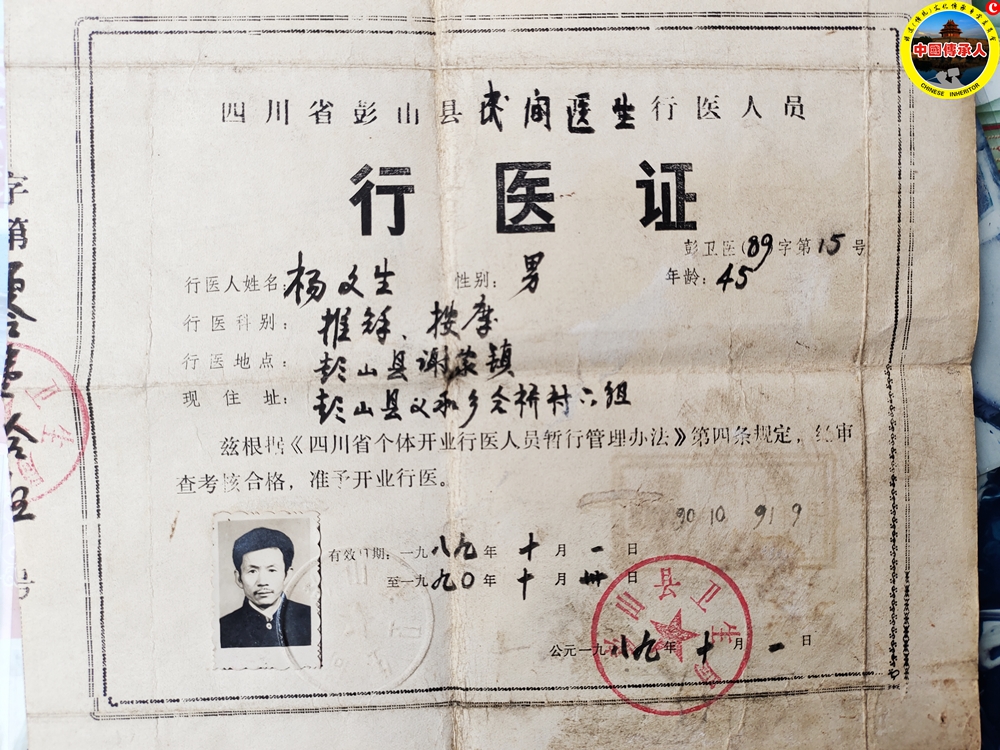 四川省彭山县民间医生行医人员
行医证
彭卫医(89)字第15号
行医人姓名：杨文生 性别：男 年龄：45
行医科别：推拿、按摩
行医地点：彭山县谢家镇
现住址：彭山县义和乡合桥村六组
兹根据《四川省个体开业行医人员暂行管理办法》第四条规定，经审
查考核合格，准予开业行医。
90 10 91 9
有效日期：一九八九年十月一日
至一九九〇年十月卅日
公元一九八九年十月一日
彭山县卫生局
字第
号
中國傳承人
CHINESE INHERITOR
C